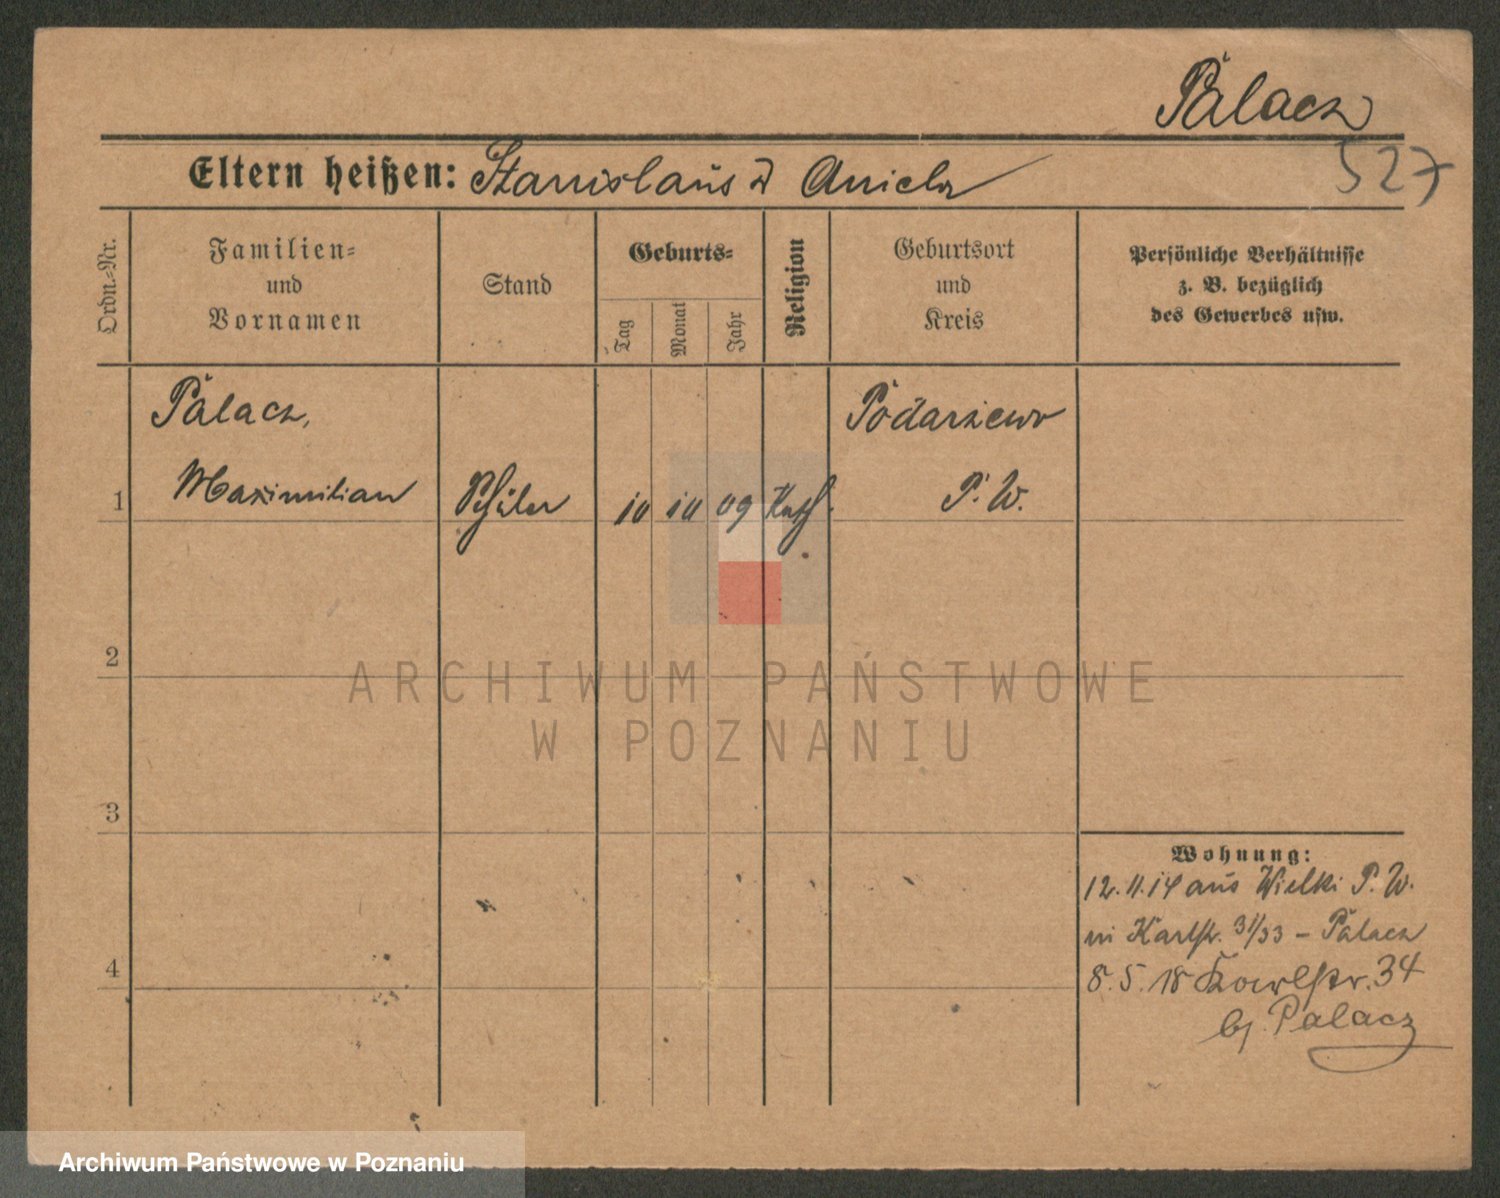 Palacz
527
Eltern heißen: Stanislaus u Aniela
Ordn.-Nr.
Familien- und Vornamen
Stand
Geburts-
Tag
Monat
Jahr
Religion
Geburtsort und Kreis
Persönliche Verhältnisse
z. B. bezüglich
des Gewerbes usw.
Palacz,
Podarzewo
1 Maximilian Schüler 10 10 09 Kath. P. W.
2
3
4
Wohnung:
12.11.14 aus Wielki P. W.
in Karlstr. 31/33 – Palacz
8.5.18 Karlstr. 34
bj. Palacz
ARCHIWUM PAŃSTWOWE
W POZNANIU
Archiwum Państwowe w Poznaniu